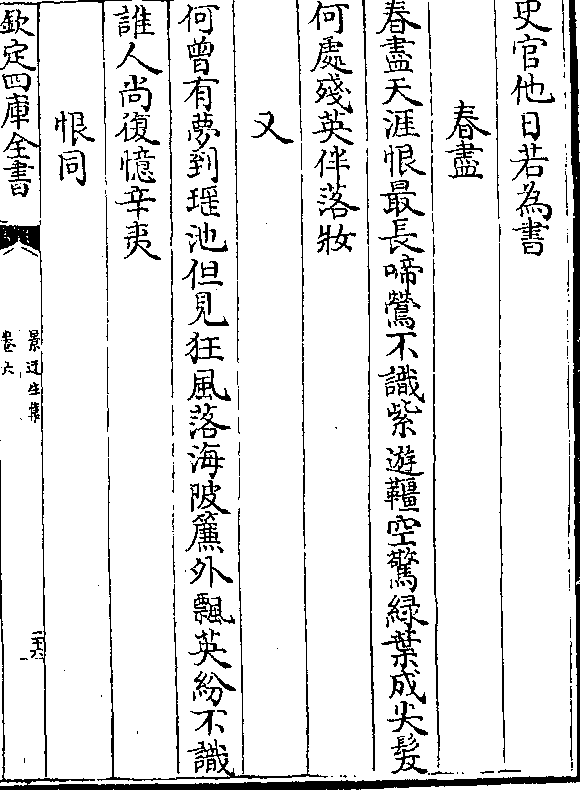 史官他日若為書
春盡
春盡天涯恨最長啼鶯不識紫遊韁空驚緑葉成尖髮
何處殘英伴落妝
又
何曾有夢到瑶池但見狂風落海陂簾外飄英紛不識
誰人尚復憶辛夷
恨同
欽定四庫全書
景迂生集
卷六